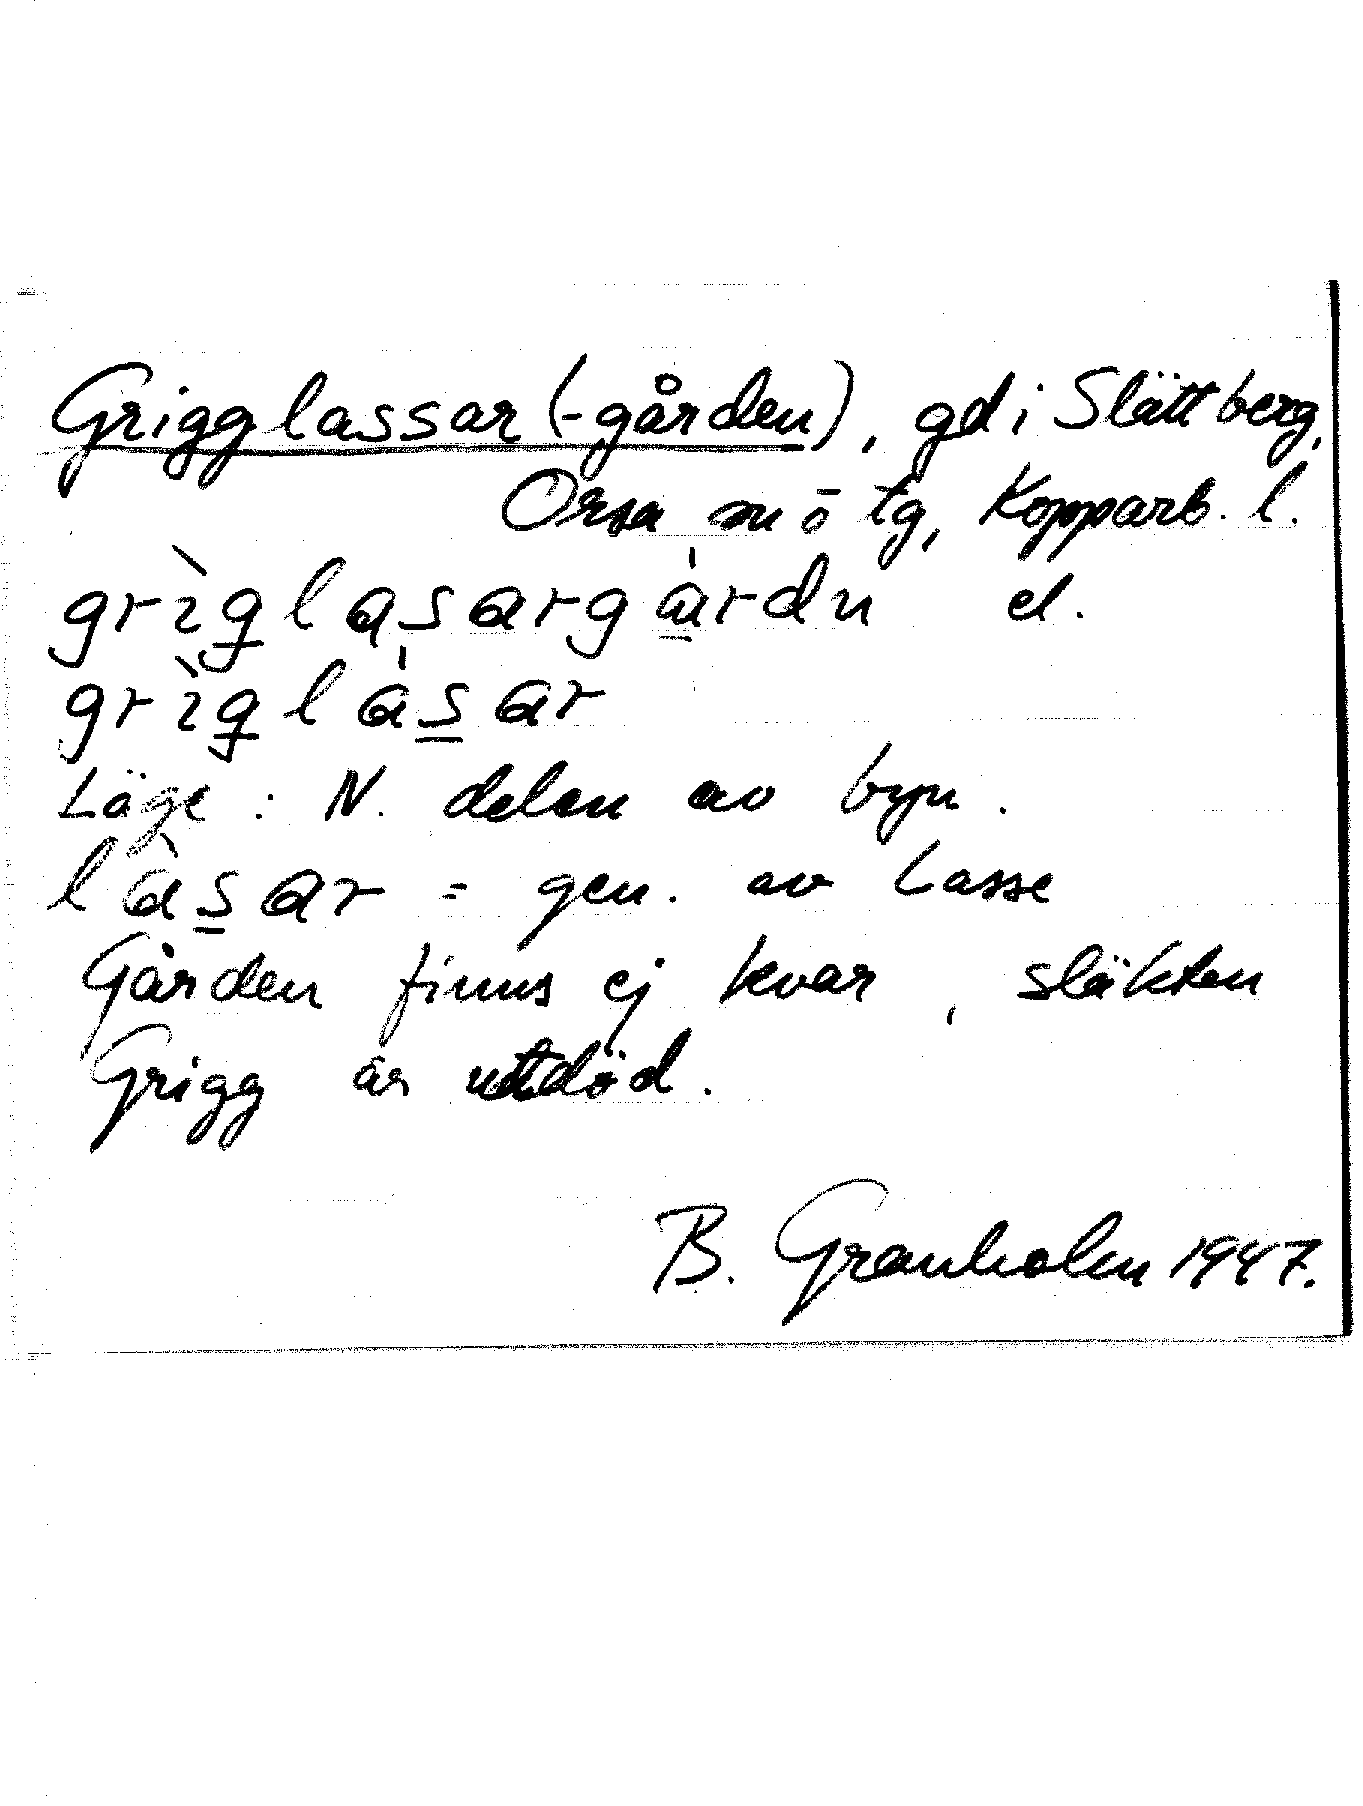 Grigglassar (-gården), gd i Slättberg,
Orsa sn o̅ tg, Kopparb. l.
grìg̲lasargå̲rdn el.
grìg̲làs̲ar
Läge : N. delen av byn.
làs̲ar = gen. av Lasse
Gården finns ej kvar, släkten
Grigg är utdöd.
B. Granholm 1947.